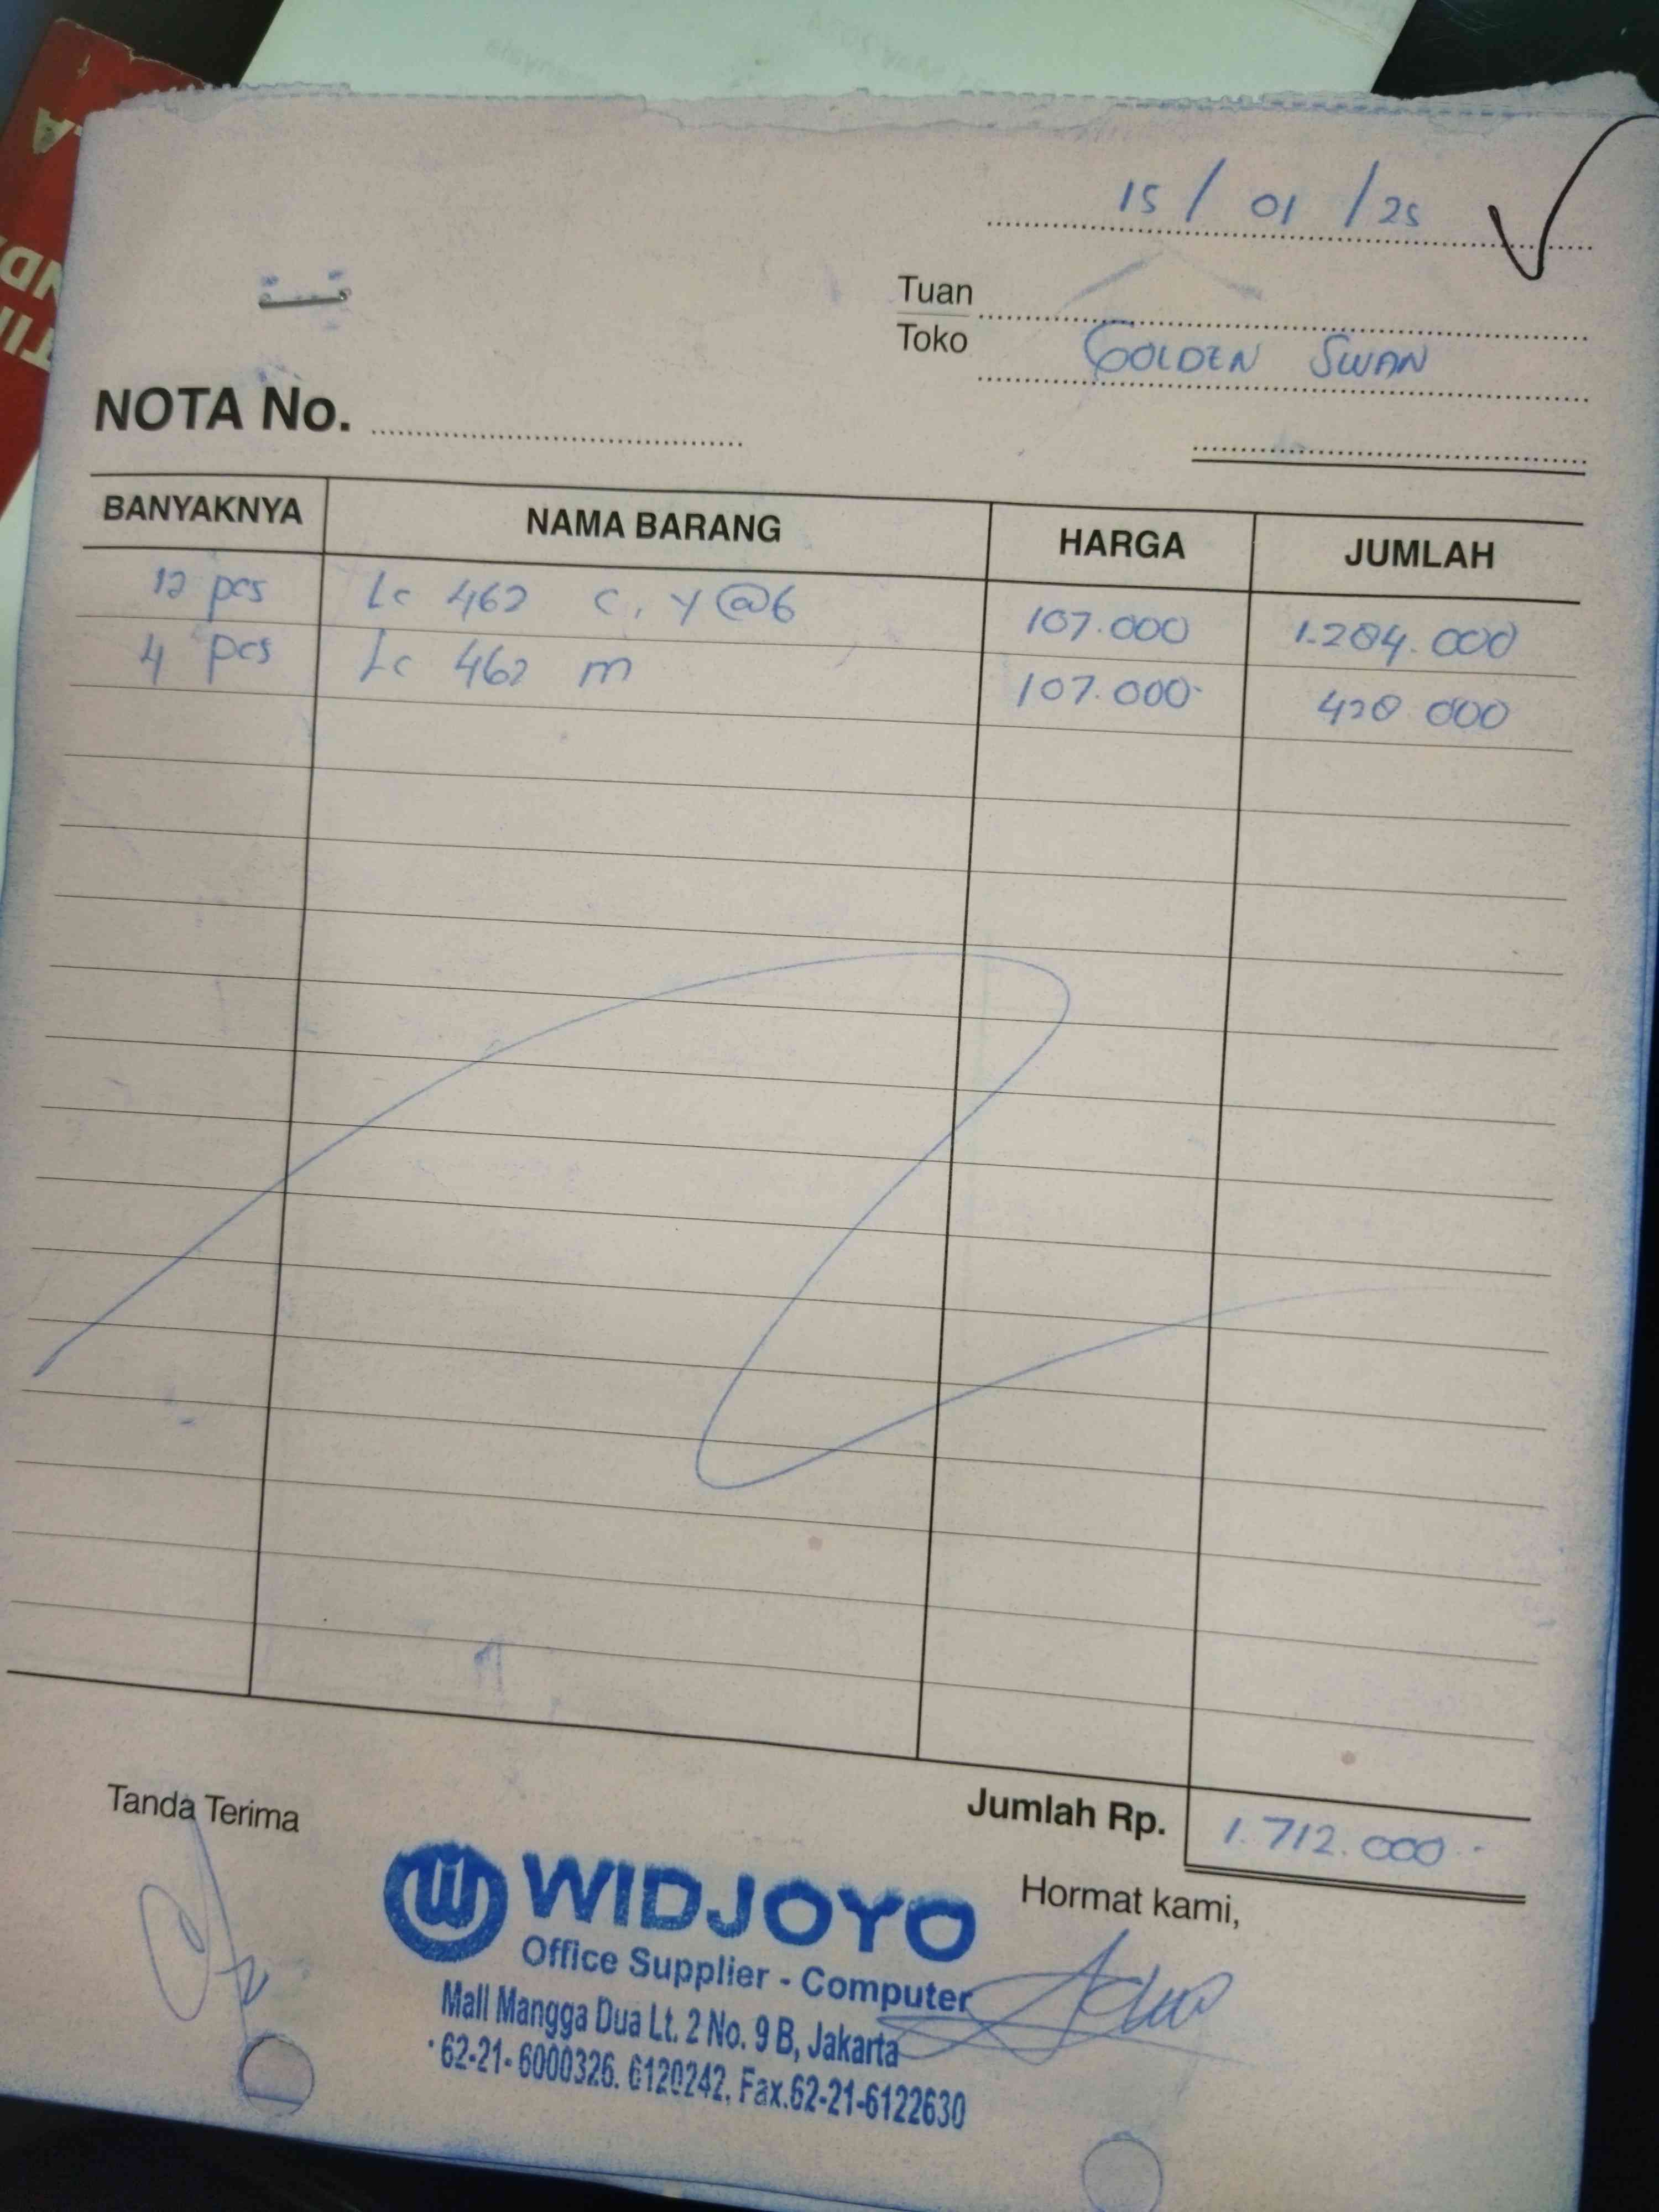 15 / 01 / 25
Tuan
Toko GOLDEN SWAN
NOTA No.
BANYAKNYA NAMA BARANG HARGA JUMLAH
12 pcs Lc 462 C, Y @6 107.000 1.284.000
4 pcs Lc 462 m 107.000 428 000
Jumlah Rp. 1.712.000
Tanda Terima
Hormat kami,
WIDJOYO
Office Supplier - Computer
Mall Mangga Dua Lt. 2 No. 9 B, Jakarta
62-21- 6000326. 6120242, Fax.62-21-6122630